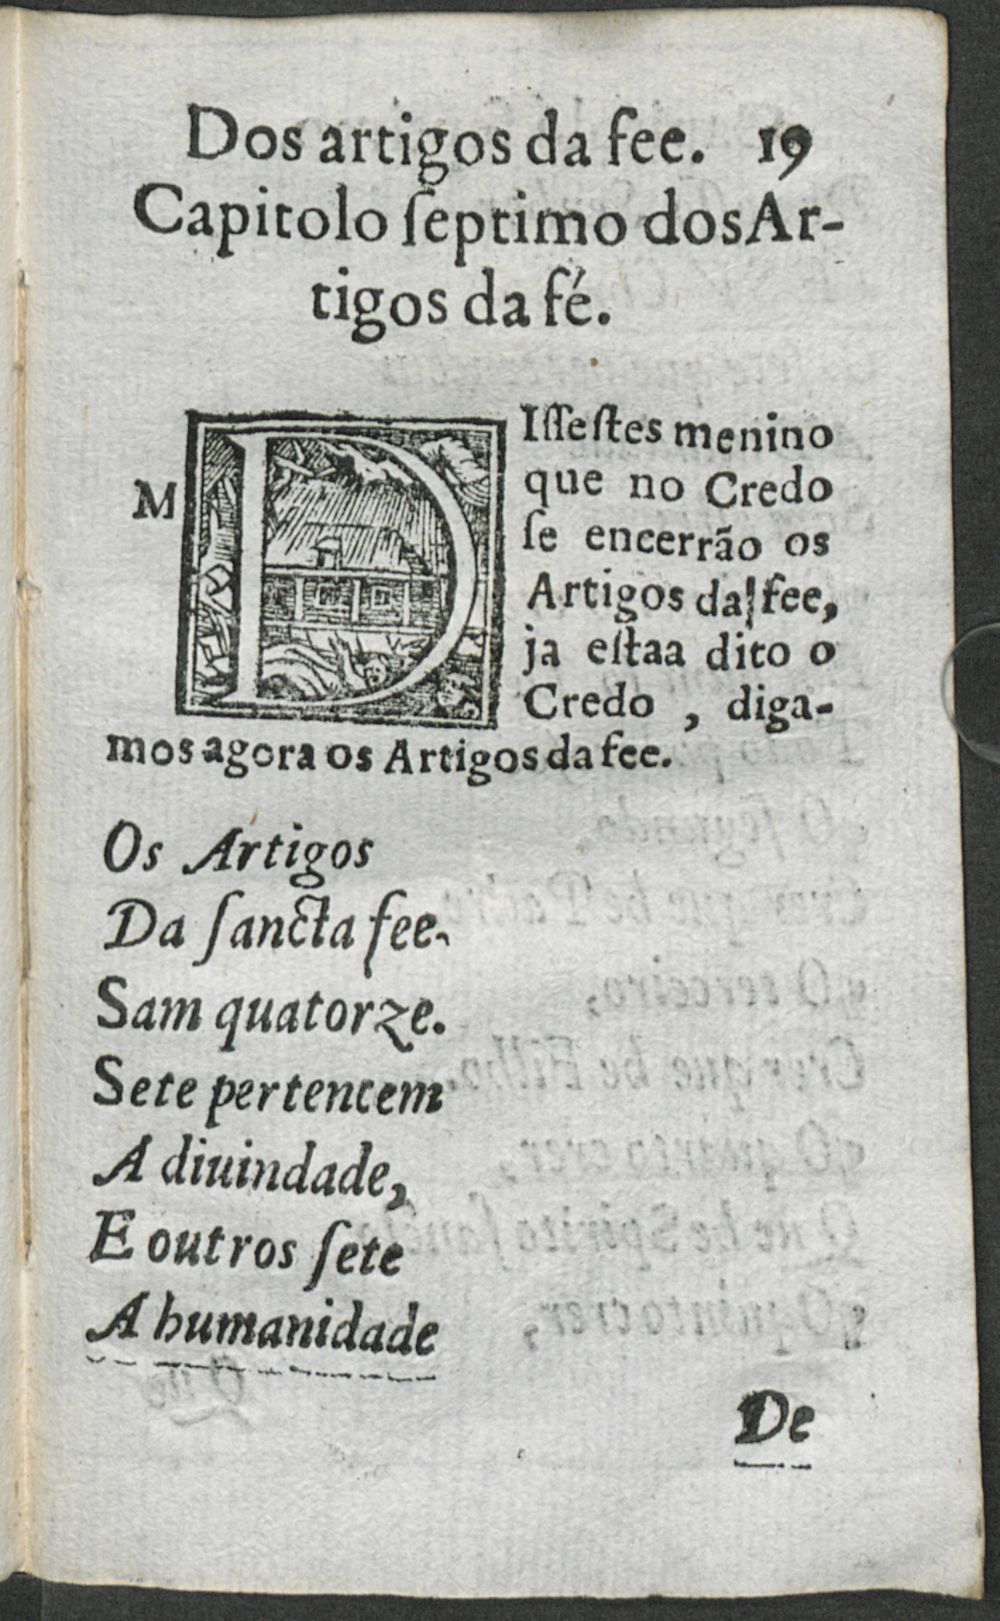 Dos artigos da fee. 19
Capitolo ſeptimo dos Ar-
tigos da fé.
M DIſſeſtes menino
que no Credo
ſe encerrão os
Artigos da fee,
ja eſtaa dito o
Credo , diga-
mos agora os Artigos da fee.
Os Artigos
Da ſancta fee.
Sam quatorze.
Sete pertencem
A diuindade,
E outros ſete
A humanidade
De